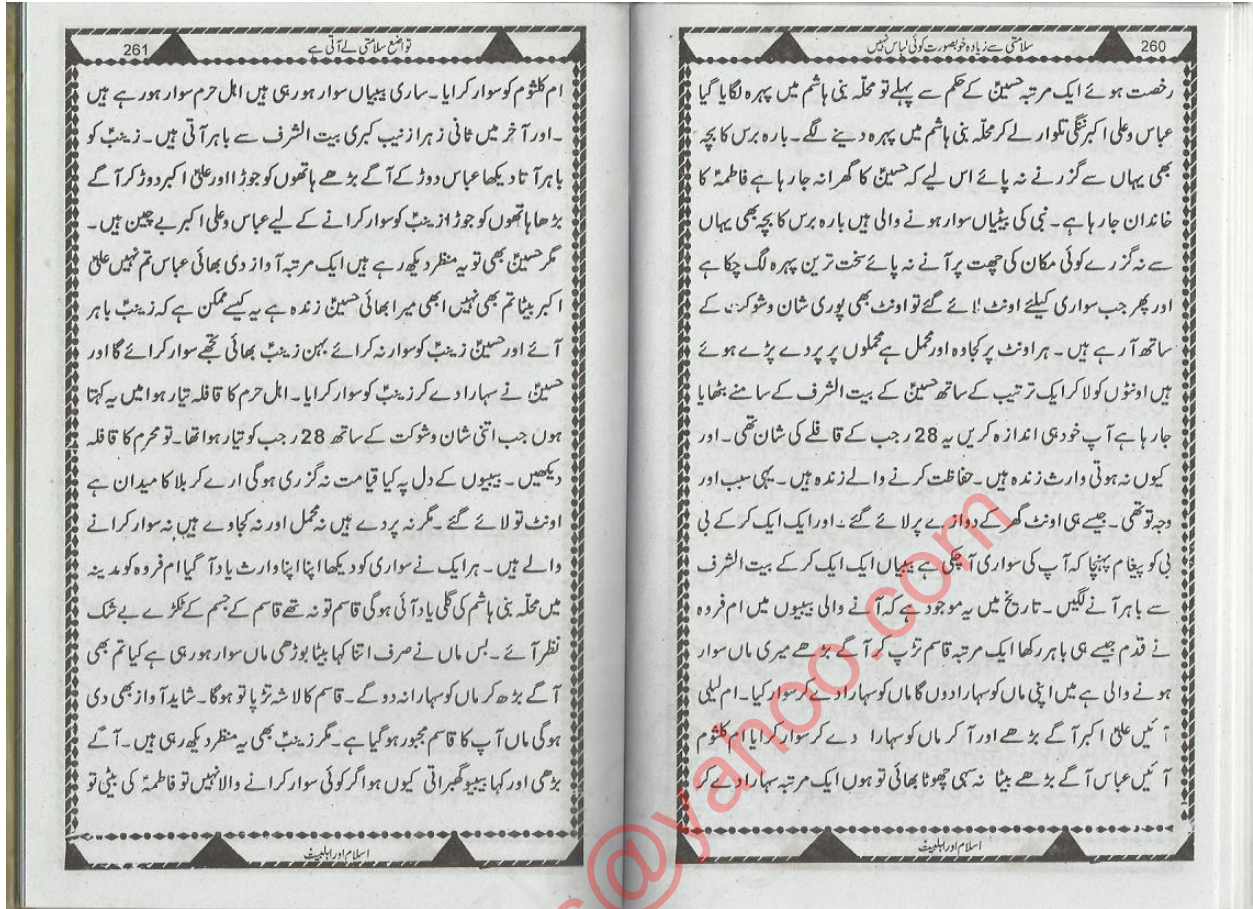 سلامتی سے زیادہ خوبصورت کوئی لباس نہیں
260
رخصت ہوئے ایک مرتبہ حسینؑ کے حکم سے پہلے تو محلّہ بنی ہاشم میں پہرہ لگایا گیا
عباس وعلی اکبر ننگی تلوار لے کر محلّہ بنی ہاشم میں پہرہ دینے لگے۔ بارہ برس کا بچہ
بھی یہاں سے گزرنے نہ پائے اس لیے کہ حسینؑ کا گھرانہ جارہا ہے فاطمہؑ کا
خاندان جارہا ہے۔ نبی کی بیٹیاں سوار ہونے والی ہیں بارہ برس کا بچہ بھی یہاں
سے نہ گزرے کوئی مکان کی چھت پر آنے نہ پائے سخت ترین پہرہ لگ چکا ہے
اور پھر جب سواری کیلئے اونٹ لائے گئے تو اونٹ بھی پوری شان وشوکت کے
ساتھ آرہے ہیں۔ ہر اونٹ پر کجاوہ اور محمل ہے محملوں پر پردے پڑے ہوئے
ہیں اونٹوں کو لا کر ایک ترتیب کے ساتھ حسینؑ کے بیت الشرف کے سامنے بٹھایا
جارہا ہے آپ خود ہی اندازہ کریں یہ 28 رجب کے قافلے کی شان تھی۔ اور
کیوں نہ ہوتی وارث زندہ ہیں۔ حفاظت کرنے والے زندہ ہیں۔ یہی سبب اور
وجہ تو تھی۔ جیسے ہی اونٹ گھر کے دوازے پر لائے گئے۔ اور ایک ایک کر کے بی
بی کو پیغام پہنچا کہ آپ کی سواری آچکی ہے بیبیاں ایک ایک کر کے بیت الشرف
سے باہر آنے لگیں۔ تاریخ میں یہ موجود ہے کہ آنے والی بیبیوں میں ام فروہ
نے قدم جیسے ہی باہر رکھا ایک مرتبہ قاسم تڑپ کر آگے بڑھے میری ماں سوار
ہونے والی ہے میں اپنی ماں کو سہارا دوں گا ماں کو سہارا دے کر سوار کیا۔ ام لیلی
آئیں علیؑ اکبر آگے بڑھے اور آ کر ماں کو سہارا دے کر سوار کرایا ام کلثوم
آئیں عباس آگے بڑھے بیٹا نہ سہی چھوٹا بھائی تو ہوں ایک مرتبہ سہارا دے کر
اسلام اور اہلبیتؑ
تواضع سلامتی لے آتی ہے
261
ام کلثوم کو سوار کرایا۔ ساری بیبیاں سوار ہورہی ہیں اھل حرم سوار ہورہے ہیں
۔ اور آخر میں ثانی زہرا زینب کبری بیت الشرف سے باہر آتی ہیں۔ زینبؑ کو
باہر آتا دیکھا عباس دوڑ کے آگے بڑھے ہاتھوں کو جوڑا اور علیؑ اکبر دوڑ کر آگے
بڑھا ہاتھوں کو جوڑا زینبؑ کو سوار کرانے کے لیے عباس وعلی اکبر بے چین ہیں۔
مگر حسینؑ بھی تو یہ منظر دیکھ رہے ہیں ایک مرتبہ آواز دی بھائی عباس تم نہیں علیؑ
اکبر بیٹا تم بھی نہیں ابھی میرا بھائی حسینؑ زندہ ہے یہ کیسے ممکن ہے کہ زینبؑ باہر
آئے اور حسینؑ زینبؑ کو سوار نہ کرائے بہن زینبؑ بھائی تجھے سوار کرائے گا اور
حسینؑ نے سہارا دے کر زینبؑ کو سوار کرایا۔ اھل حرم کا قافلہ تیار ہوا میں یہ کہتا
ہوں جب اتنی شان وشوکت کے ساتھ 28 رجب کو تیار ہوا تھا۔ تو محرم کا قافلہ
دیکھیں۔ بیبیوں کے دل پہ کیا قیامت نہ گزری ہوگی ارے کربلا کا میدان ہے
اونٹ تو لائے گئے۔ مگر نہ پردے ہیں نہ محمل اور نہ کجاوے ہیں نہ سوار کرانے
والے ہیں۔ ہر ایک نے سواری کو دیکھا اپنا اپنا وارث یاد آگیا ام فروہ کو مدینہ
میں محلّہ بنی ہاشم کی گلی یاد آئی ہوگی قاسم تو نہ تھے قاسم کے جسم کے ٹکڑے بے شک
نظر آئے۔ بس ماں نے صرف اتنا کہا بیٹا بوڑھی ماں سوار ہورہی ہے کیا تم بھی
آگے بڑھ کر ماں کو سہارا نہ دو گے۔ قاسم کا لاشہ تڑپا تو ہوگا۔ شاید آواز بھی دی
ہوگی ماں آپ کا قاسم مجبور ہوگیا ہے۔ مگر زینبؑ بھی یہ منظر دیکھ رہی ہیں۔ آگے
بڑھی اور کہا بیبیو گھبراتی کیوں ہو اگر کوئی سوار کرانے والا نہیں تو فاطمہؑ کی بیٹی تو
اسلام اور اہلبیتؑ
@yahoo.com